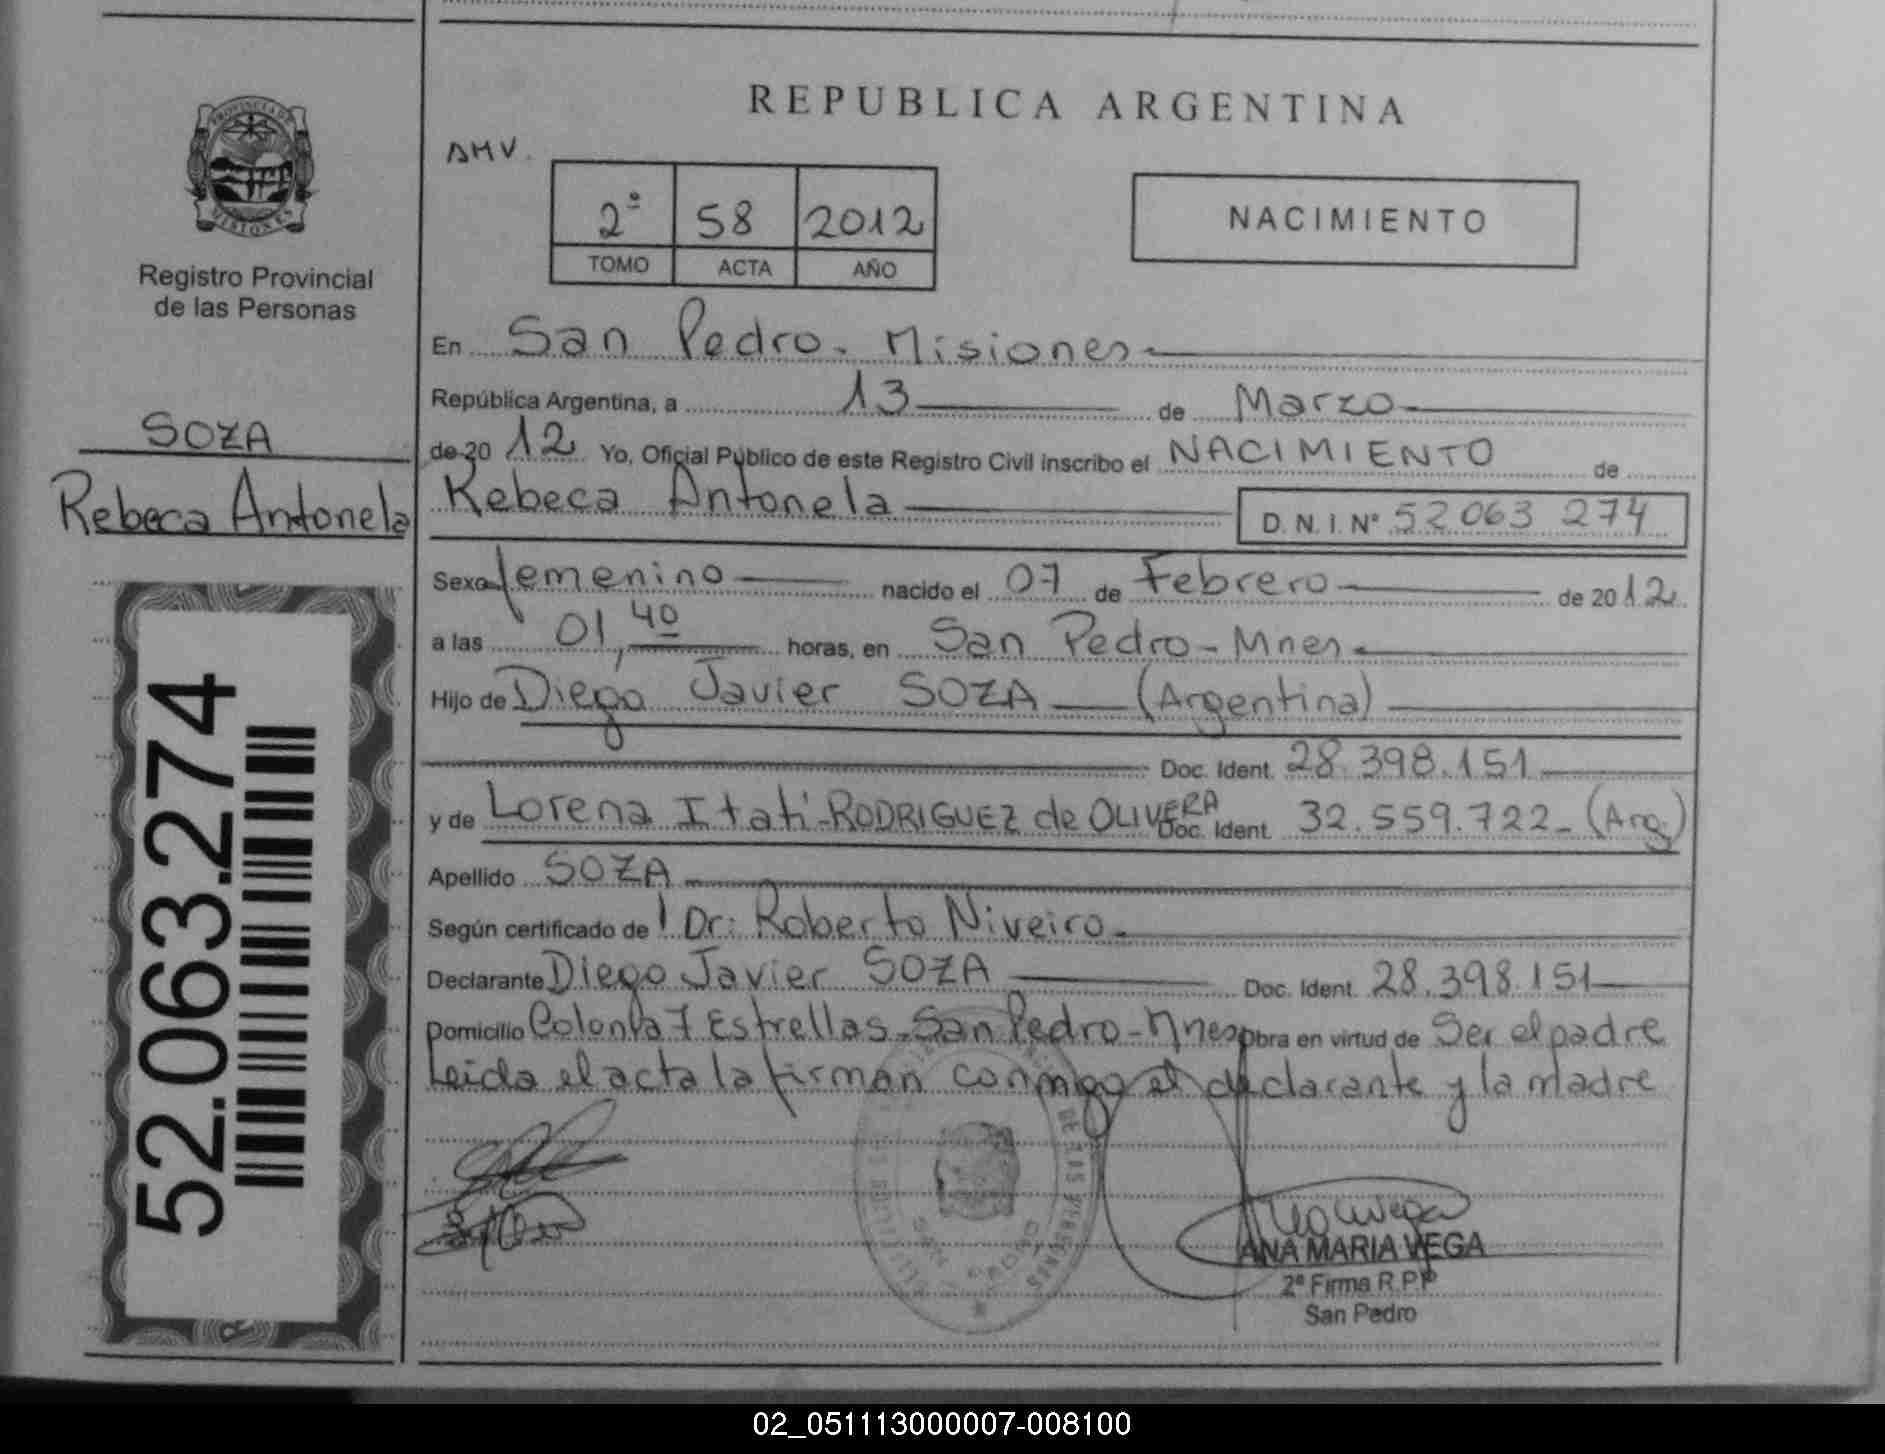 REPUBLICA ARGENTINA
PROVINCIA DE
MISIONES
Registro Provincial
de las Personas
AMV.
2º 58 2012
TOMO ACTA AÑO
NACIMIENTO
SOZA
Rebeca Antonela
52.063.274
En San Pedro - Misiones
República Argentina, a 13 de Marzo
de 20 12 Yo, Oficial Público de este Registro Civil inscribo el NACIMIENTO de
Rebeca Antonela D.N.I. Nº 52 063 274
Sexo femenino nacido el 07 de Febrero de 20 12
a las 01,40 horas, en San Pedro - Mnes.
Hijo de Diego Javier SOZA (Argentina)
Doc. Ident. 28.398.151
y de Lorena Itatí - RODRIGUEZ de OLIVERA Doc. Ident. 32.559.722 - (Arg)
Apellido SOZA
Según certificado de Dr: Roberto Niveiro.
Declarante Diego Javier SOZA Doc. Ident. 28.398.151
Domicilio Colonia 7 Estrellas - San Pedro - Mnes Obra en virtud de Ser el padre
Leida el acta la firman conmigo el declarante y la madre
ANA MARIA VEGA
2ª Firma R.P.P
San Pedro
02_051113000007-008100